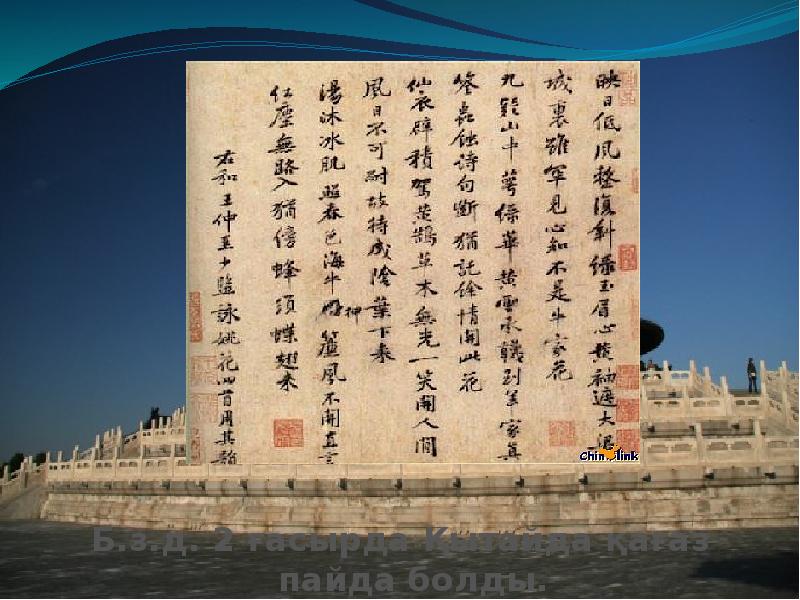 映日低風整復斜綠玉眉心黃袖遮大
城裏雖罕見心知不是牛家花
九疑山中萼綠華黃雲承韈到羊家真
筌蟲蝕詩句斷猶託餘情開此花
仙衣襞積駕黃鵠草木無光一笑開人間
風日不可耐故待成陰葉下來
湯沐冰肌照春色海牛押簾風不開直言
紅塵無路入猶傍蜂須蝶翅來
右和王仲至少監詠姚花四首用其韻
Б.з.д. 2 ғасырда Қытайда қағаз
пайда болды.